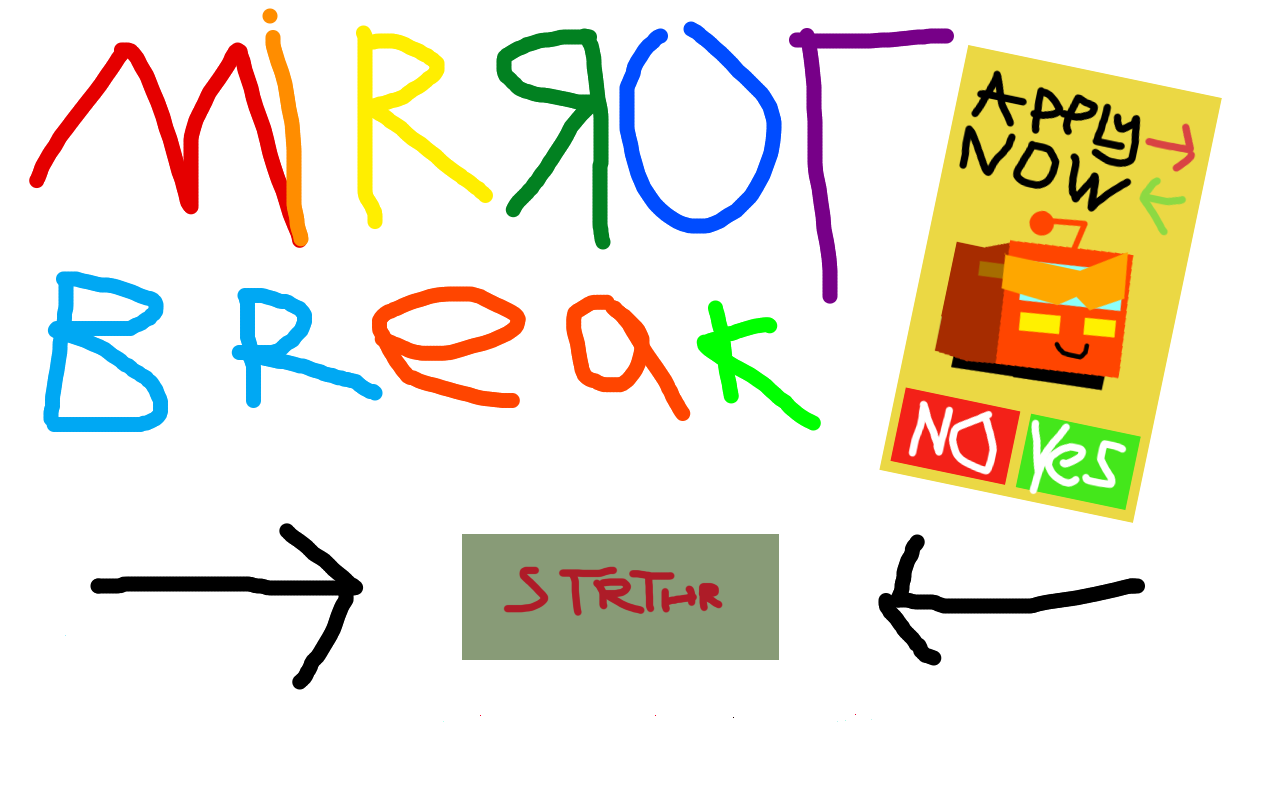 MiRЯOГ
BReaK
APPLY
NOW
NO
Yes
STRTHR